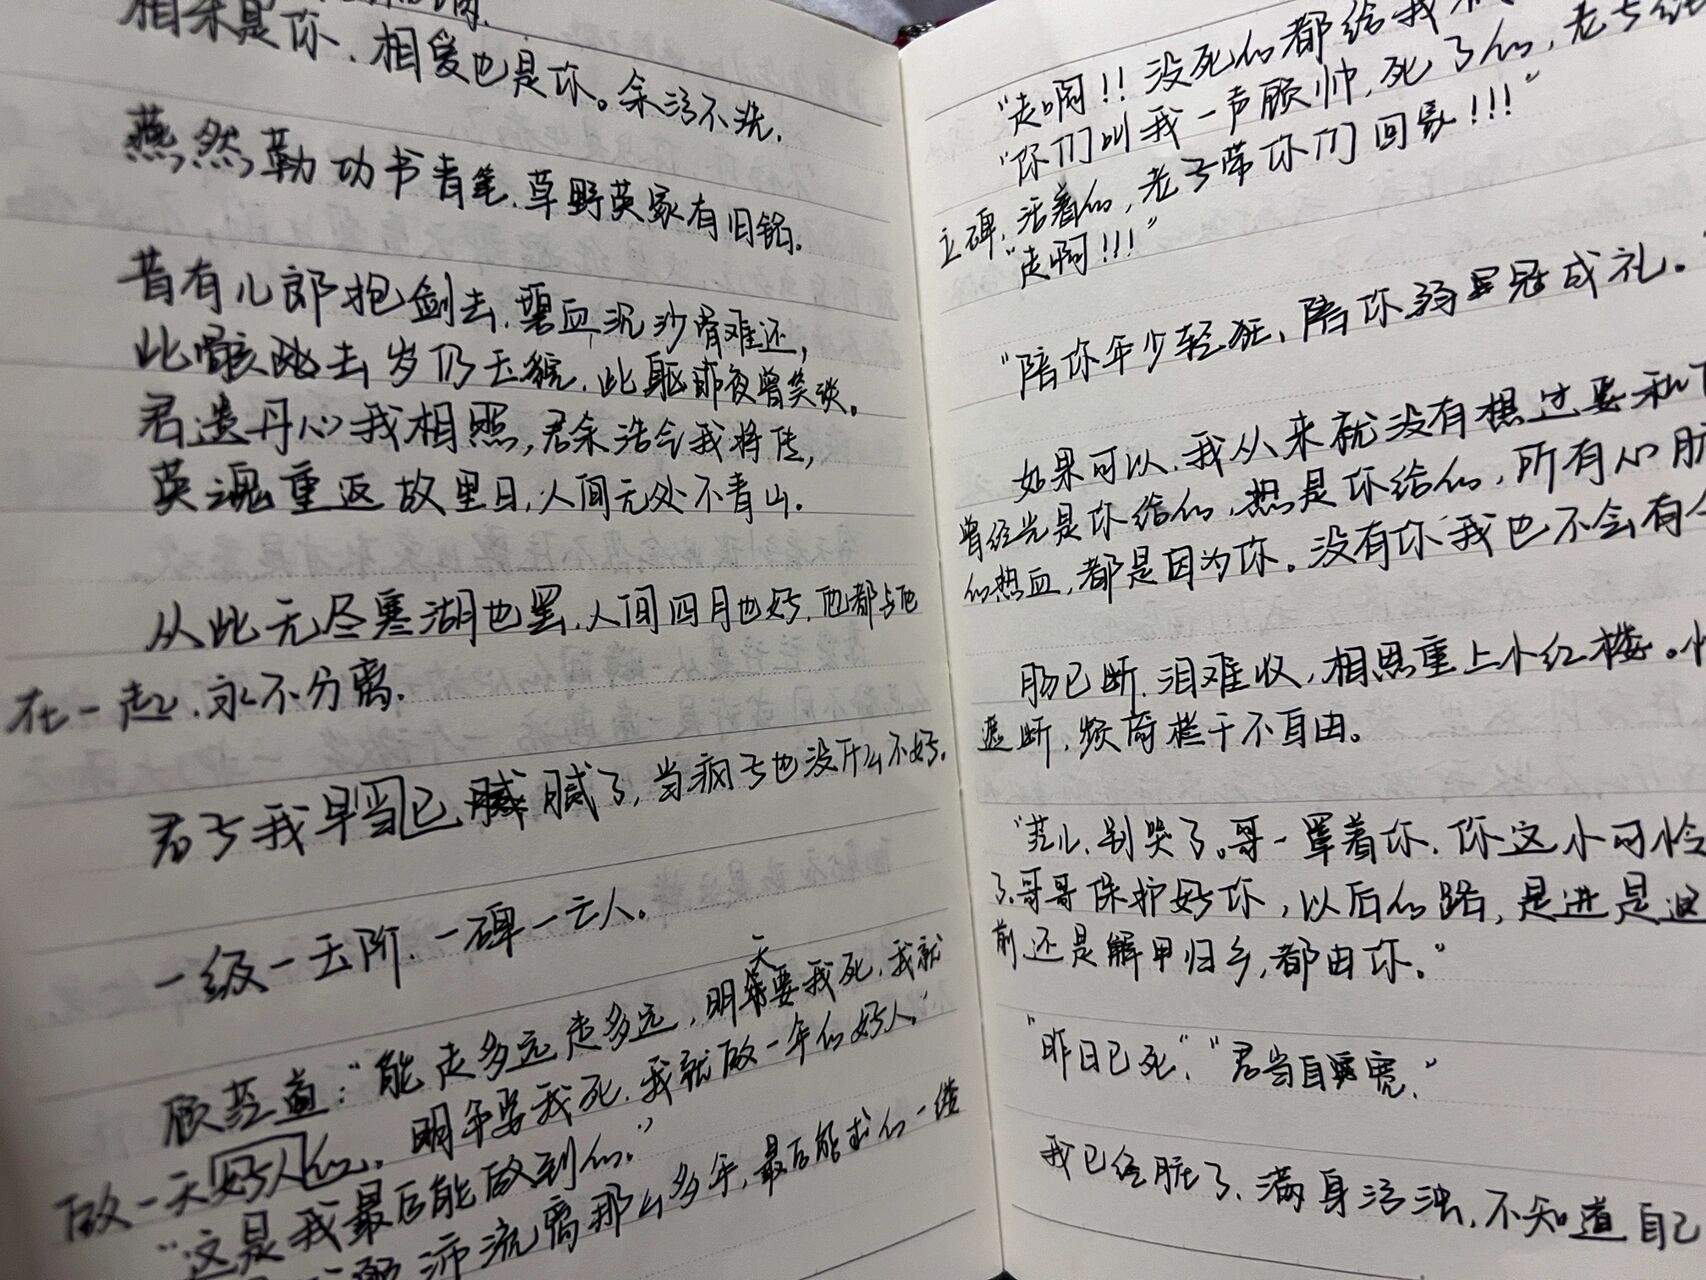 相亲是你，相爱也是你。余污不洗，
燕然勒功书青笔，草野英冢有旧铭。
昔有儿郎抱剑去，碧血沉沙骨难还，
此骸去岁仍玉貌，此躯昨夜曾笑谈。
君遗丹心我相照，君余浩气我将传，
英魂重返故里日，人间无处不青山。
从此无尽寒湖也罢，人间四月也好，他都与他
在一起，永不分离。
君子我早当已腻腻了，当疯子也没什么不好。
一级一玉阶，一碑一云人。
顾茫道："能走多远走多远，明天要我死，我就
做一天好人的。明年要我死，我就做一年的好人。"
"这是我最后能做到的。"
沛流离那么多年，最后能求的一
"走啊！！没死的都给我
"你们叫我一声顾帅，死了的，老子给
立碑，活着的，老子带你们回家！！！"
"走啊！！！"
"陪你年少轻狂，陪你弱冠成礼。
如果可以，我从来就没有想过要和
曾经光是你给的，热是你给的，所有心脏
的热血，都是因为你。没有你我也不会有今
肠已断，泪难收，相思重上小红楼。情
遮断，频倚栏干不自由。
"茫儿，别哭了。哥一罩着你，你这小可怜
了。哥哥保护好你，以后的路，是进是退
前还是解甲归乡，都由你。"
"昨日已死，""君当自宽，"
我已经脏了，满身污浊，不知道自己